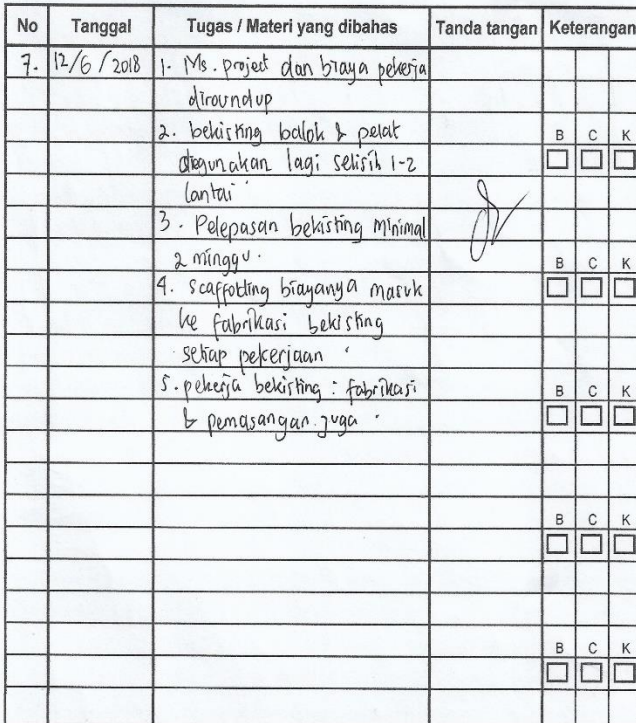 No Tanggal Tugas / Materi yang dibahas Tanda tangan Keterangan
7. 12/6/2018 1. Ms. project dan biaya pekerja
diroundup
2. bekisting balok & pelat
B C K
digunakan lagi selisih 1-2
lantai
3. Pelepasan bekisting minimal
2 minggu.
B C K
4. scaffolding biayanya masuk
ke fabrikasi bekisting
setiap pekerjaan
5. pekerja bekisting : fabrikasi
B C K
& pemasangan juga.
B C K
B C K